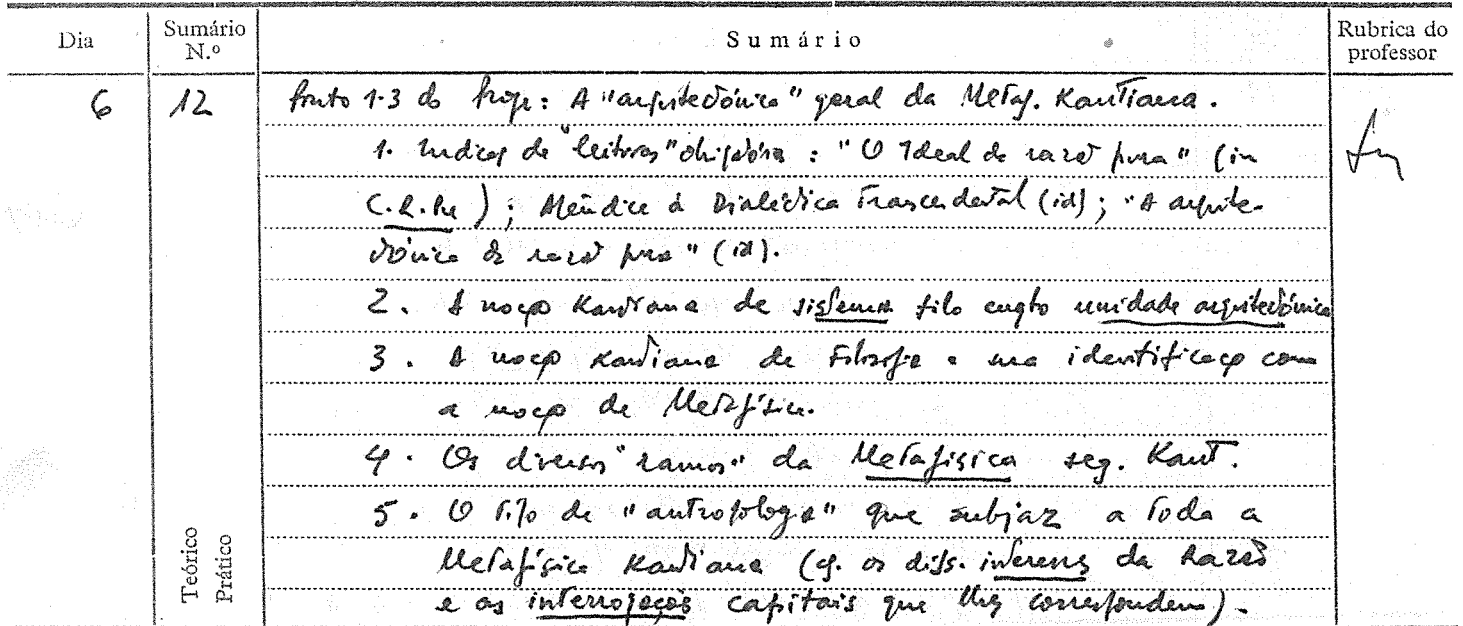 Dia Sumário N.º Sumário Rubrica do professor
6 12 Ponto 1.3 do Progr: A "arquitectónica" geral da Metaf. Kantiana.
1. Indicaç de "leituras" obrigatória : "O Ideal da razão pura" (in
C.R.Pu) ; Apêndice à Dialéctica Transcendental (id) ; "A arquite-
ctónica da razão pura" (id).
2. A noção Kantiana de sistema filo enqto unidade arquitectónica
3. A noção Kantiana de Filosofia e sua identificação com
a noção de Metafísica.
4. Os diversos "ramos" da Metafísica seg. Kant.
5. O tipo de "antropologia" que subjaz a toda a
Metafísica Kantiana (cf. os difs. interesses da Razão
e as interrogações capitais que lhes correspondem).
Teórico
Prático